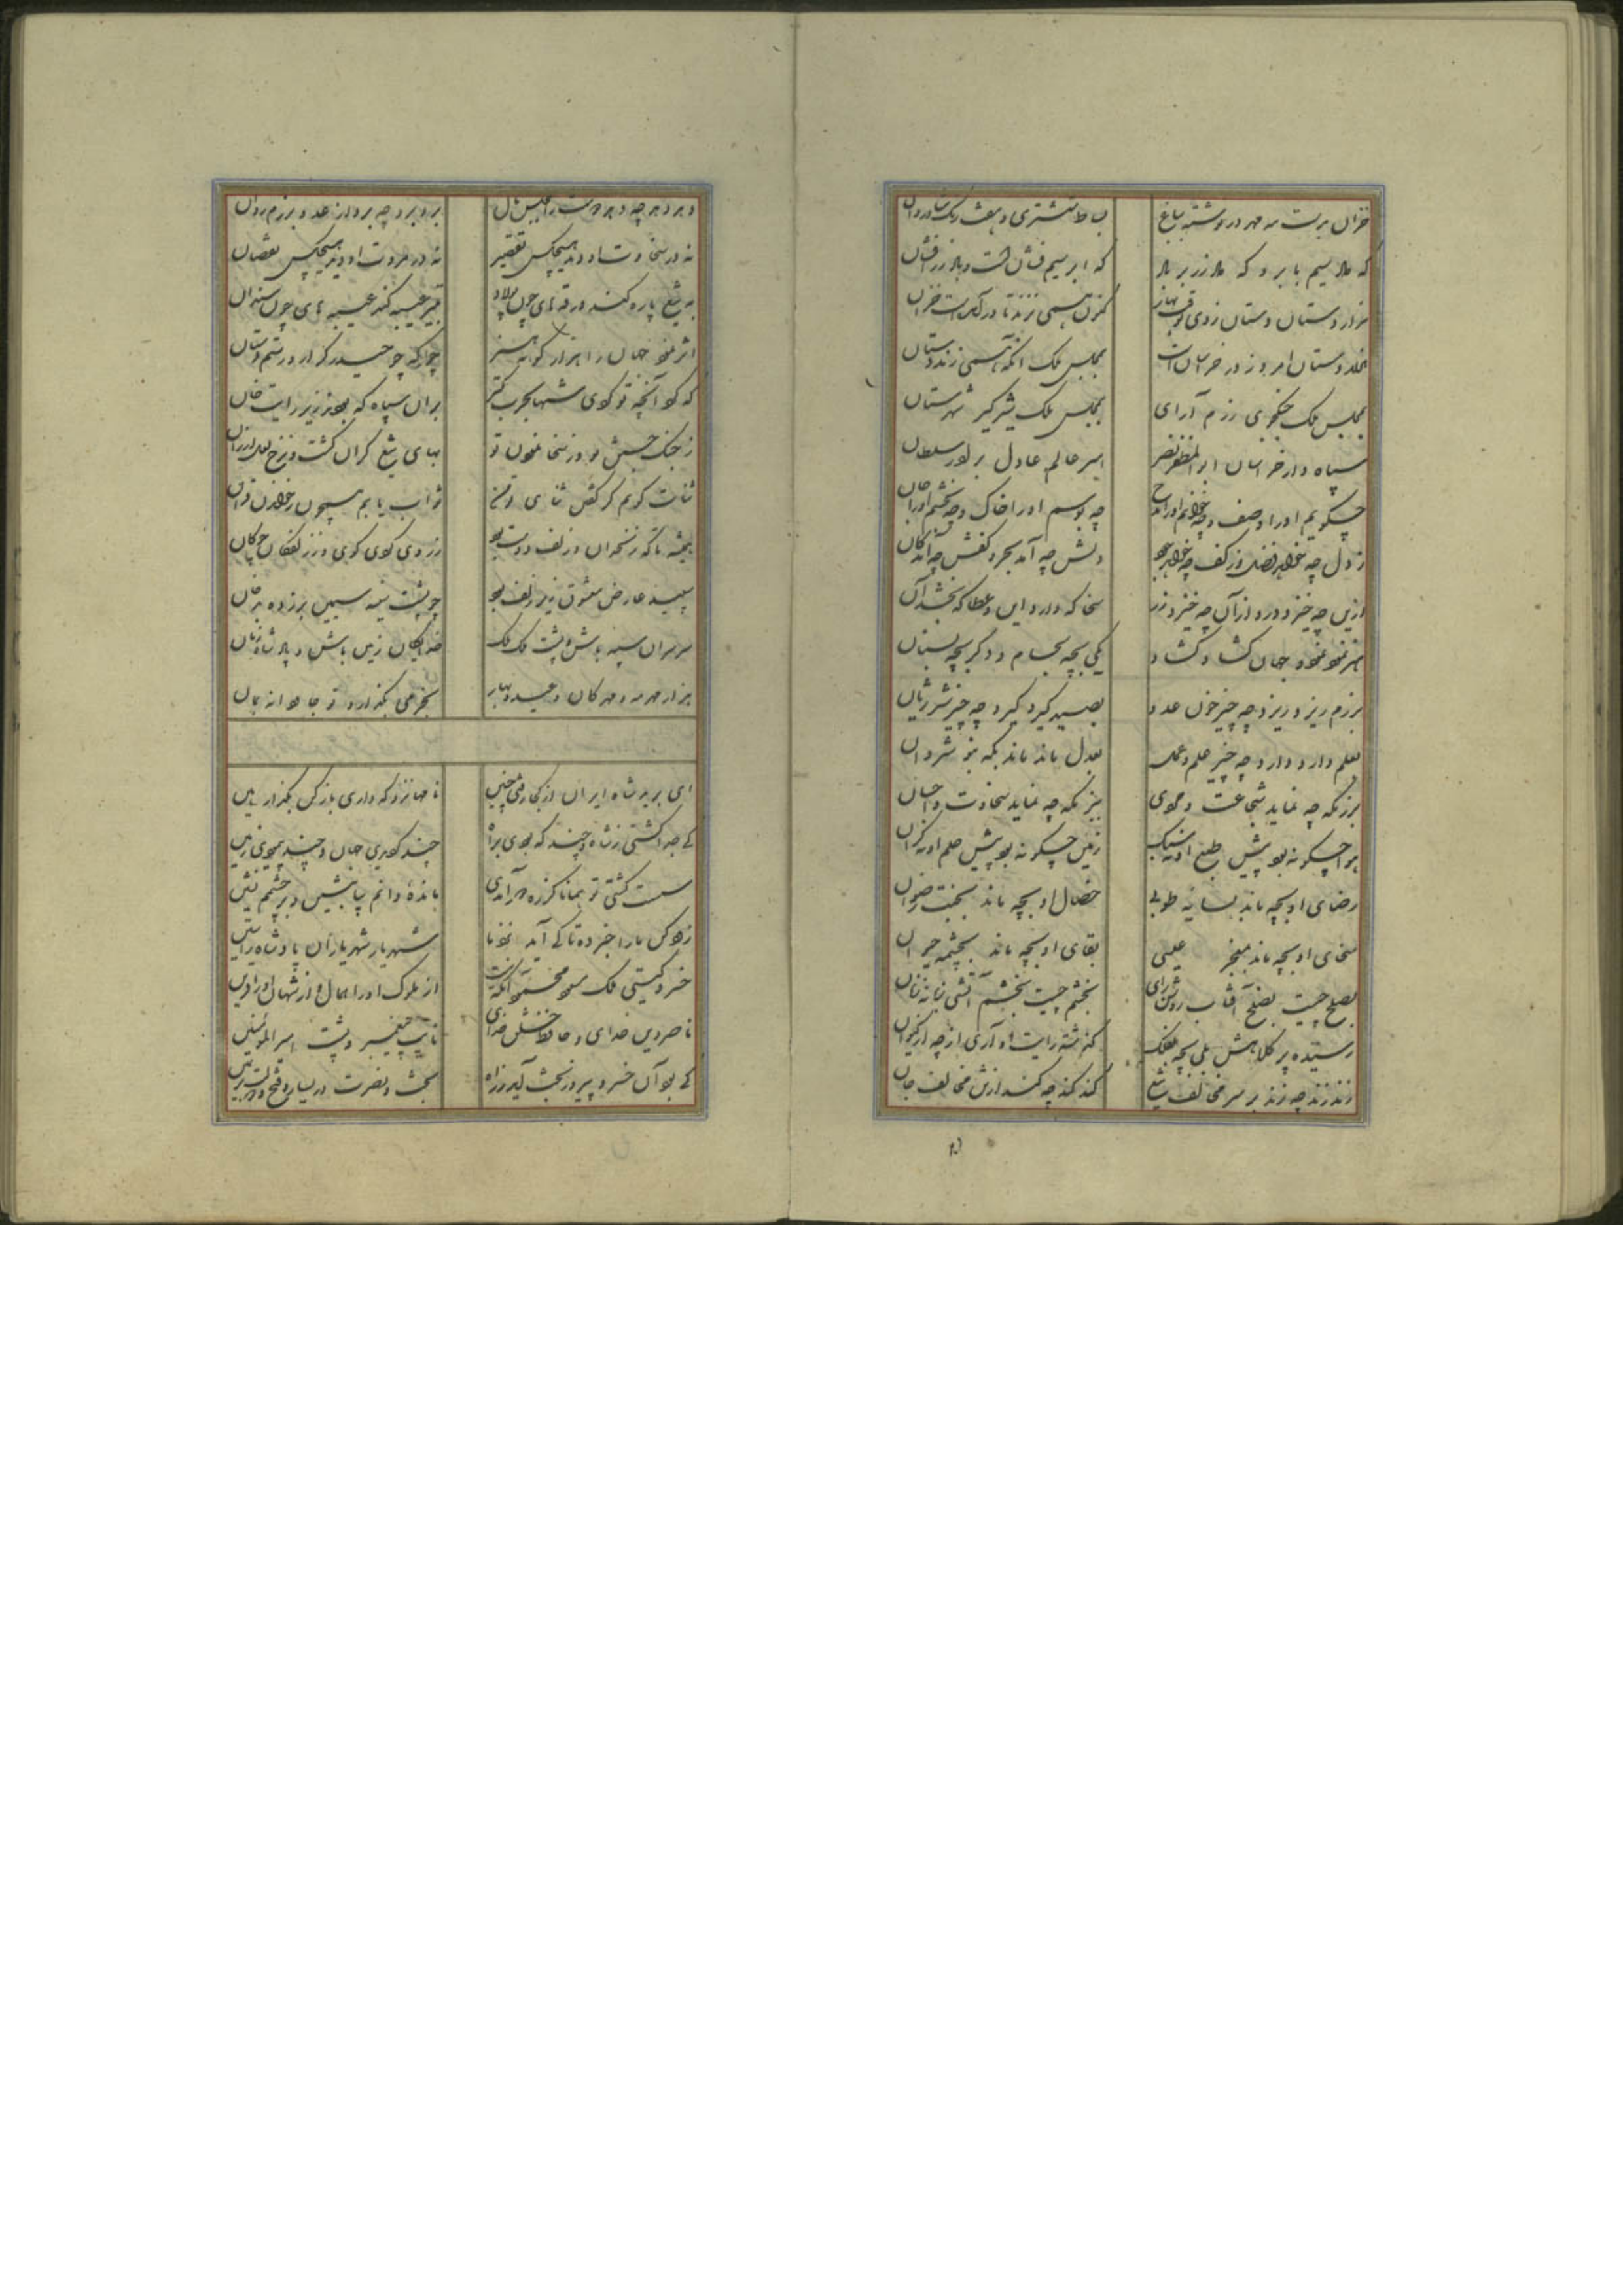 خزان بدست مه مهر در نوشته بباغ بساط ششتری و هفت رنگ شادروان
که ملا سیم بابر و که ملا زر بر باد که ابر سیم فشان گشت و باد زر افشان
هزار دستان دستان زدی بوقت بهار کنون همی نزند تا درآمدست خزان
هزار دستان امروز در خراسان است بمجلس ملک انکه همی زند دستان
بمجلس ملک جنگجوی رزم آرای بمجلس ملک شیرگیر شهرستان
سپاه دار خراسان ابو المظفر نصر امیر عالم عادل برادر سلطان
چگویم او را وصف و چه خوانم او را مدح چه بوسم او را خاک و چه بخشم او را جان
ز دل چه خواهد فضل و ز کف چه خواهد جود دلش چه آمد بحر و کفش چه آمد کان
ازین چه خیزد در و از آن چه خیزد زر سخا که دارد این و عطا که بخشد آن
هنر نمود نمود و جهان گشاد گشاد یکی بچه بحسام و دگر بچه بسنان
برزم ریزد ریزد چه چیز خون عدو بصید گیرد گیرد چه چیز شیر ژیان
بعلم دارد دارد چه چیز علم و عمل بعدل ماند ماند بکه بنوشروان
برزمگه چه نماید شجاعت و مردی ببزمگه چه نماید سخاوت و احسان
هوا چگونه بود پیش طبع او نه سبک زمین چگونه بود پیش حلم او نه گران
رضای او بچه ماند بسایه طوبی خصال او بچه ماند بجنت رضوان
سخای او بچه ماند بمعجز عیسی بقای او بچه ماند بچشمه حیوان
بصلح چیست بصلح آفتاب روشن رای بخشم چیست بخشم آتشی زبانه زنان
رسیده پر کلاهش بلی بچه بفلک گذشته رایت او آری از چه از کیوان
زند زند چه زند بر سر مخالف تیغ کند کند چه کند از تن مخالف جان
دهد دهد چه دهد دوست را بمجلس مال برد برد چه برد از عدو برزم روان
نه در سخاوت او دید هیچکس تقصیر نه در مروت او دید هیچکس نقصان
به تیغ پاره کند درقه های چون پولاد بتیر عیبه کند عیبه های چون سندان
اثر نمود جهان را هزار گونه هنر چرا که چو حیدر کرار و رستم دستان
که کرد آنچه تو کردی شها بحرب کتر بران سپاه که بودند زیر رایت خان
ز جنگ جستن تو وز سخا نمودن تو بهای تیغ گران گشت و نرخ مدح ارزان
ثنات گویم کز گفتن ثنای تو من ثواب یابم همچون ز خواندن قرآن
همیشه تا که زنخدان و زلف دوست بود ز روی گوی گوی و ز زلفکان چوگان
سپید عارض معشوق زیر زلف بود چو پشت سیمین بر زده به خفتان
سر سران سپه باش و پشت ملک ملک خدایگان زمین باش و پادشاه زمان
هزار مهر مه و مهرگان و عید و بهار بخرمی بگذار و تو جاودانه بمان
ای برید شاه ایران از کجا رفتی چنین نامها نزد که داری بار کن بگذار هین
کی جدا گشتی ز شاه و چند گه بودی براه چند گه بودی جهان و چند پیمودی زمین
سست گشتی تو همانا کز ره دور آمدی مانده ای دانم بیا بنشین و بر چشمم نشین
زود کن ما را خبر ده تا کی آید نزد ما شهریار شهریاران پادشاه راستین
خسرو گیتی ملک مسعود محمود آنکه هست از ملوک او را همال و از شهان او را قرین
ناصر دین خدای و حافظ خلق خدای نایب پیغمبر و پشت امیر المومنین
کی بود آن خسرو پیروز بخت آید ز راه بخت و نصرت در یسار و فتح و دولت بر یمین